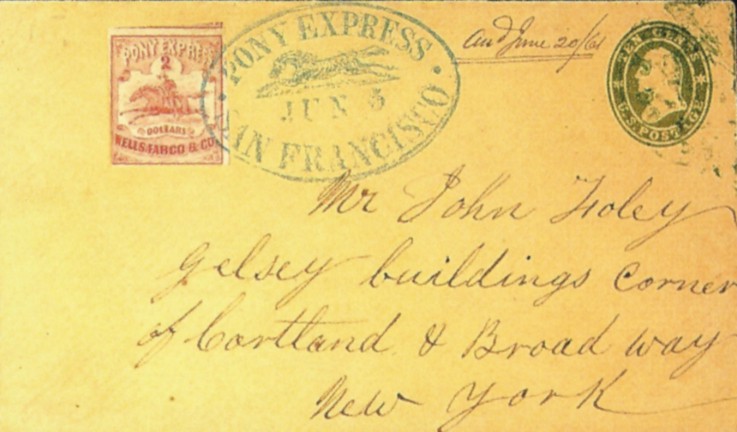 PONY EXPRESS
2
DOLLARS
WELLS, FARGO & CO.
PONY EXPRESS
JUN 5
SAN FRANCISCO
Ansd June 20/61
TEN CENTS
U.S. POSTAGE
Mr John Foley
Gelsey buildings corner
of Cortland & Broad way
New York